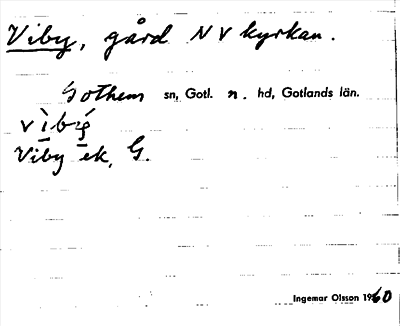 Viby, gård NV kyrkan.
Gothem sn, Gotl. n. hd, Gotlands län.
Viby ek, G.
Ingemar Olsson 1960